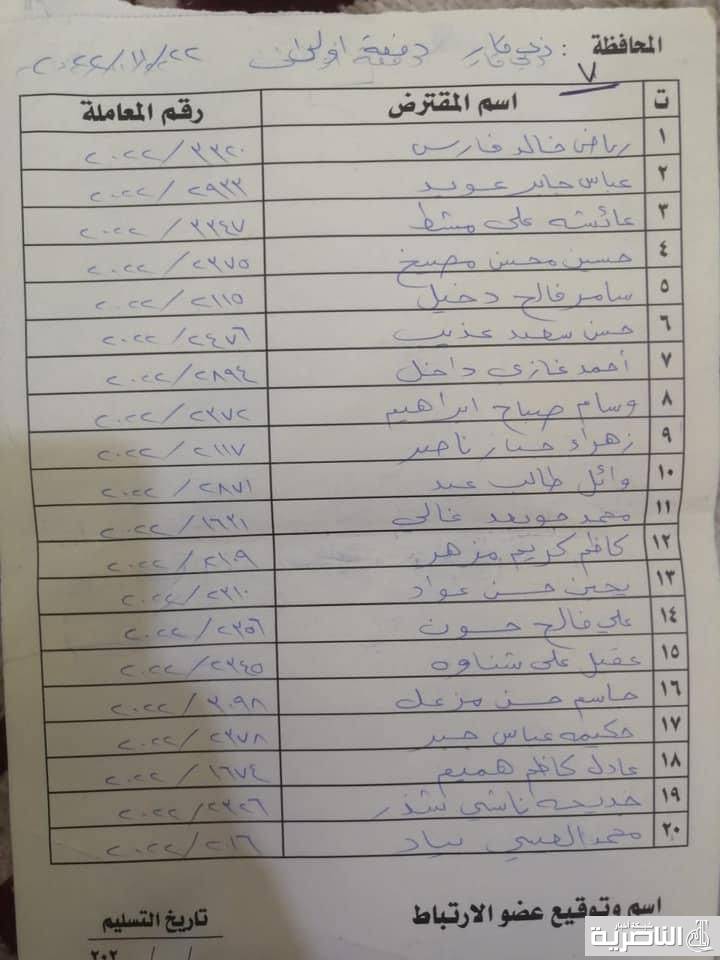 المحافظة : ذي قار دفعة اولى ٢٠٢٢/٧/٢٢
٧
ت اسم المقترض رقم المعاملة
١ رياض خالد فارس ٣٣٢٠ / ٢٠٢٢
٢ عباس جابر عويد ٢٩٣٣ / ٢٠٢٢
٣ عائشه علي مشط ٣٣٤٧ / ٢٠٢٢
٤ حسين محسن ٢٣٧٥ / ٢٠٢٢
٥ سامر فالح دخيل ٢١١٥ / ٢٠٢٢
٦ حسن سعيد عذيب ٢٤٧٦ / ٢٠٢٢
٧ أحمد غازي داخل ٢٨٩٤ / ٢٠٢٢
٨ وسام صباح ابراهيم ٢٣٧٢ / ٢٠٢٢
٩ زهراء ناصر ٢١١٧ / ٢٠٢٢
١٠ وائل طالب عبد ٢٨٧١ / ٢٠٢٢
١١ محمد غالي ١٦٣١ / ٢٠٢٢
١٢ كاظم كريم مزهر ٢١٠٩ / ٢٠٢٢
١٣ يحيى حسن عواد ٢٣١٠ / ٢٠٢٢
١٤ علي فالح حسون ٢٣٥٦ / ٢٠٢٢
١٥ عقيل علي شناوه ٢٣٤٥ / ٢٠٢٢
١٦ جاسم حسن مزعل ٣٠٩٨ / ٢٠٢٢
١٧ حكيمه عباس جبر ٢٣٧٨ / ٢٠٢٢
١٨ عادل كاظم هميم ١٦٧٤ / ٢٠٢٢
١٩ خديجه ناشي شذر ٢٣٢٦ / ٢٠٢٢
٢٠ محمد ٢٠١٦ / ٢٠٢٢
اسم وتوقيع عضو الارتباط تاريخ التسليم
/ / ٢٠٢
شبكة أخبار
الناصرية